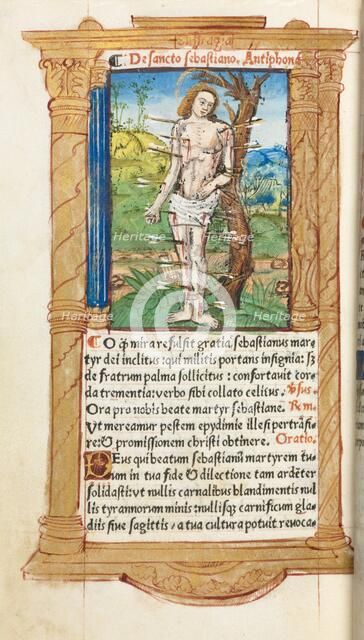 Suffragia
¶ De sancto sebastiano. Antiphona
¶ O q̄ mira refulsit gratia sebastianus mar-
tyr dei inclitus: qui militis portans insignia: sȝ
de fratrum palma sollicitus: confortauit cor-
da trementia: verbo sibi collato celitus. ℣sus
Ora pro nobis beate martyr sebastiane. Rm̄
Ut mereamur pestem epydimie illesi pertrāsi-
re: & promissionem christi obtinere. Oratio.
Deus qui beatum sebastianū martyrem tu-
um in tua fide & dilectione tam ardēter
solidasti: ut nullis carnalibus blandimentis nul
lis tyrannorum minis: nullisqȝ carnificum gla-
diis siue sagittis, a tua cultura potuit reuoca-
Heritage
Heritage
Heritage
Heritage
Images
Images